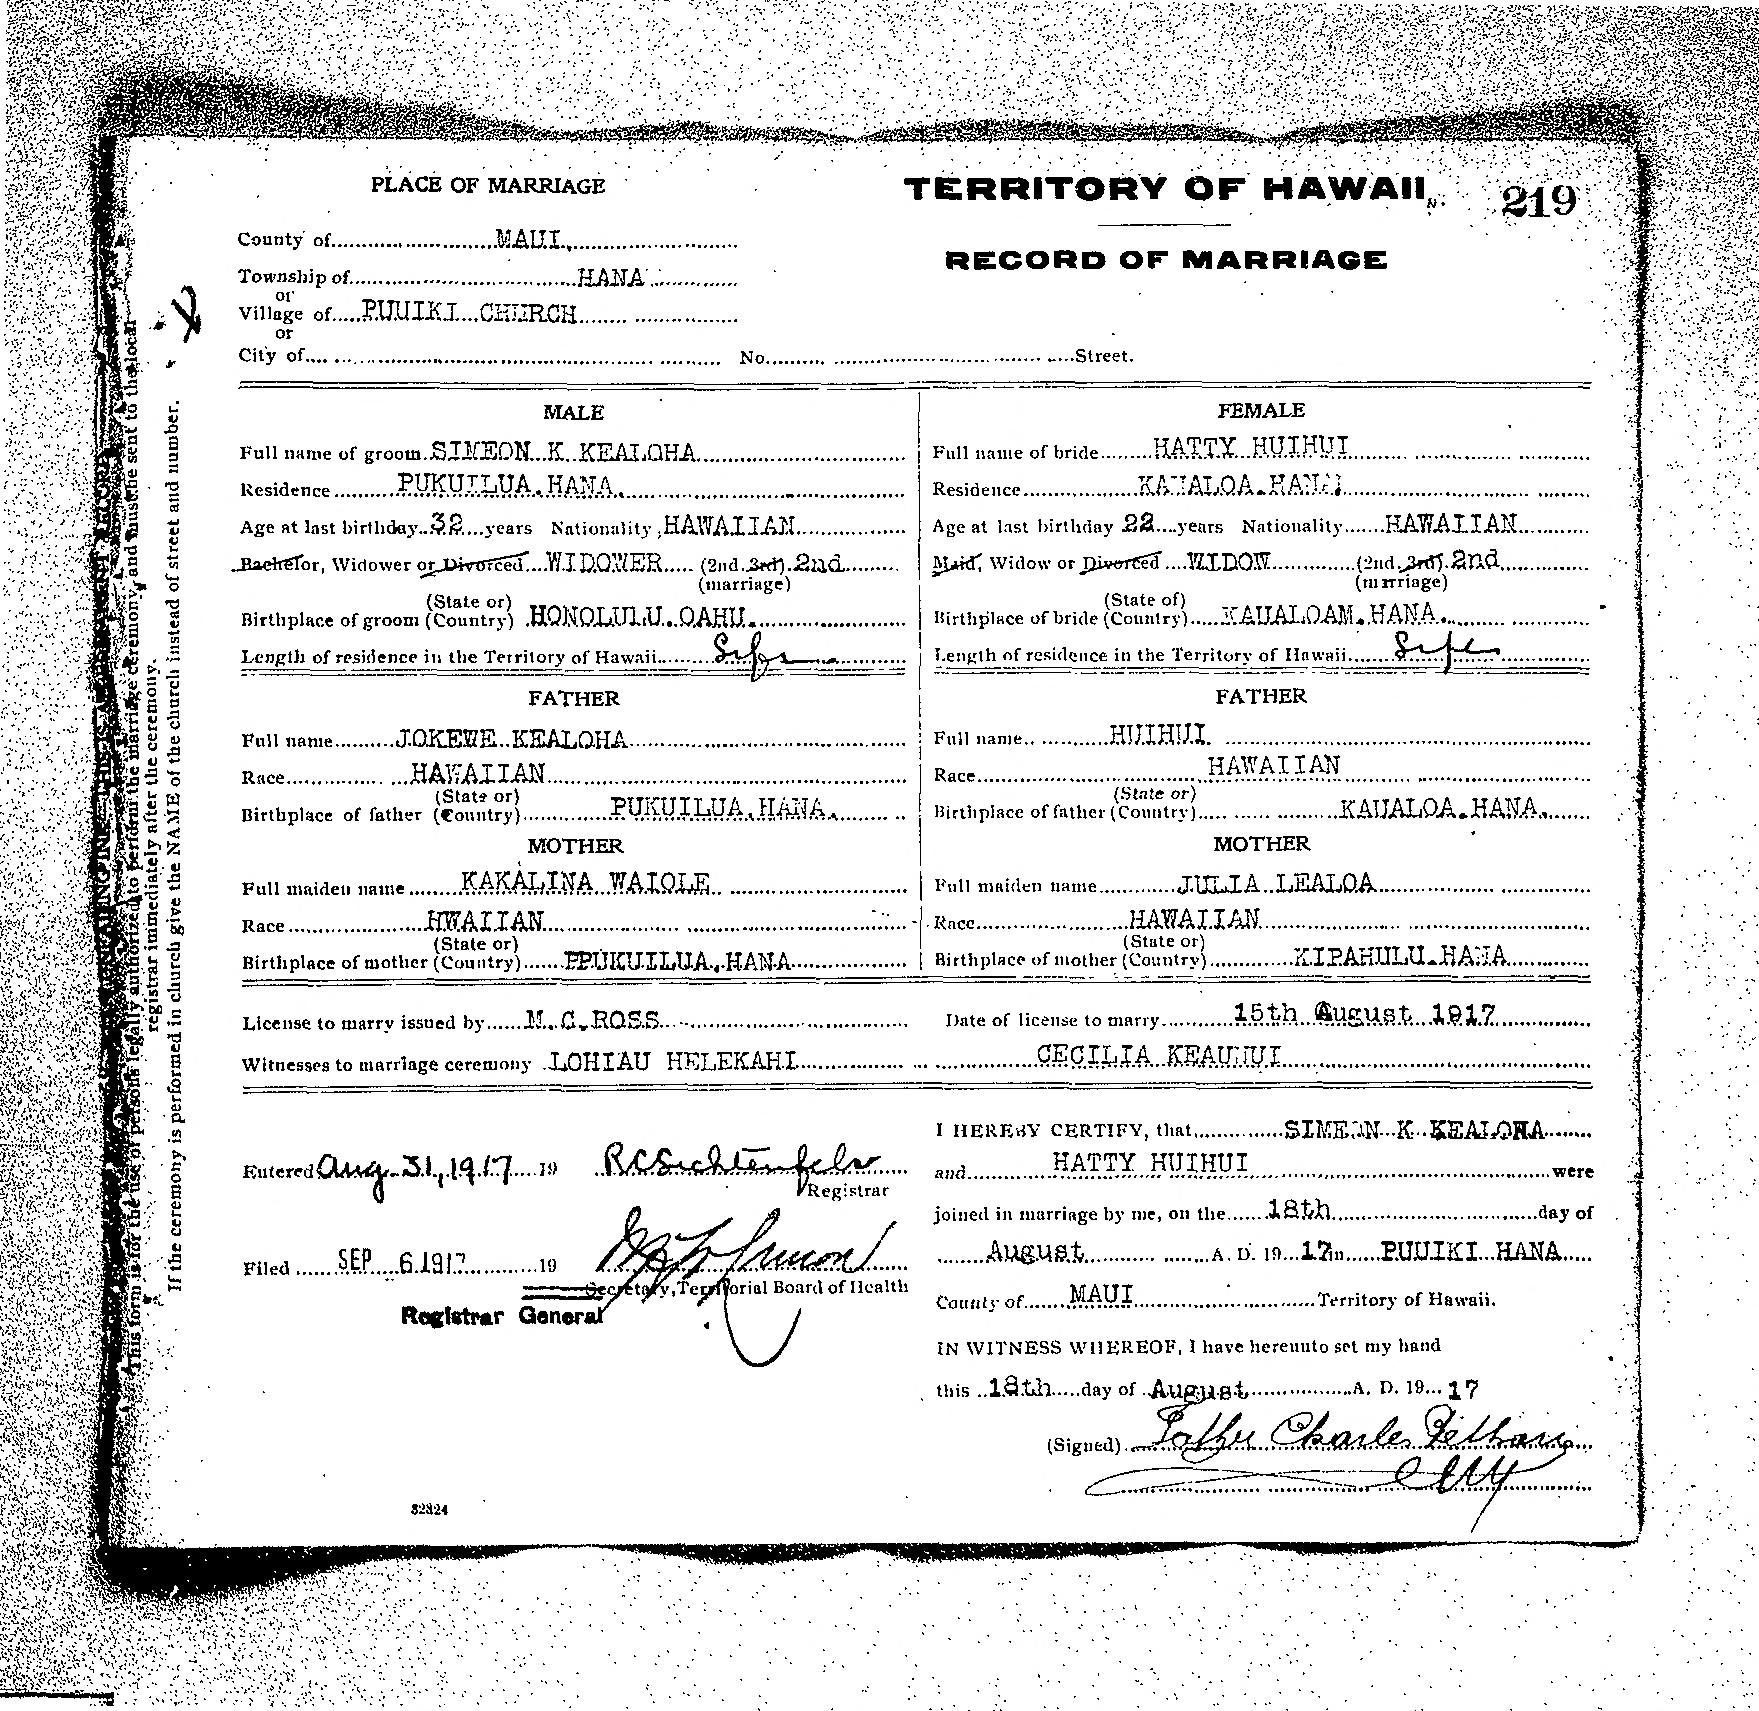 PLACE OF MARRIAGE
TERRITORY OF HAWAII
219
RECORD OF MARRIAGE
County of MAUI.
Township of HANA
or
Village of PUUIKI CHURCH
or
City of No. Street.
MALE
Full name of groom SIMEON K KEALOHA
Residence PUKUILUA.HANA.
Age at last birthday 32 years Nationality HAWAIIAN
Bachelor, Widower or Divorced WIDOWER (2nd 3rd) 2nd
(marriage)
(State or)
Birthplace of groom (Country) HONOLULU.OAHU.
Length of residence in the Territory of Hawaii Life
FATHER
Full name JOKEWE KEALOHA
Race HAWAIIAN
(State or)
Birthplace of father (Country) PUKUILUA.HANA.
MOTHER
Full maiden name KAKALINA WAIOLE
Race HWAIIAN
(State or)
Birthplace of mother (Country) PPUKUILUA.HANA
FEMALE
Full name of bride HATTY HUIHUI
Residence KAUALOA.HANA
Age at last birthday 22 years Nationality HAWAIIAN
Maid, Widow or Divorced WIDOW (2nd 3rd) 2nd
(marriage)
(State of)
Birthplace of bride (Country) KAUALOAM.HANA.
Length of residence in the Territory of Hawaii Life
FATHER
Full name HUIHUI
Race HAWAIIAN
(State or)
Birthplace of father (Country) KAUALOA.HANA.
MOTHER
Full maiden name JULIA LEALOA
Race HAWAIIAN
(State or)
Birthplace of mother (Country) KIPAHULU.HANA
License to marry issued by M.C.ROSS
Date of license to marry 15th August 1917
Witnesses to marriage ceremony LOHIAU HELEKAHI CECILIA KEAUHUI
Entered Aug 31, 1917 19
Registrar
Filed SEP 6 1917 19
Secretary, Territorial Board of Health
Registrar General
I HEREBY CERTIFY, that SIMEON K KEALOHA
and HATTY HUIHUI were
joined in marriage by me, on the 18th day of
August A. D. 19 17 in PUUIKI HANA
County of MAUI Territory of Hawaii.
IN WITNESS WHEREOF, I have hereunto set my hand
this 18th day of August A. D. 19 17
(Signed) Father Charles
32324
This form is for the use of persons legally authorized to perform the marriage ceremony, and must be sent to the local
registrar immediately after the ceremony.
If the ceremony is performed in church give the NAME of the church instead of street and number.